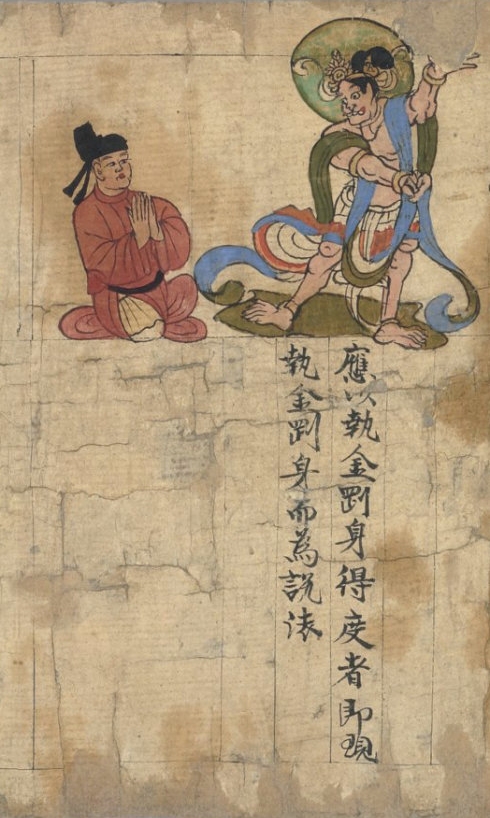 應以執金剛身得度者即現
執金剛身而為說法